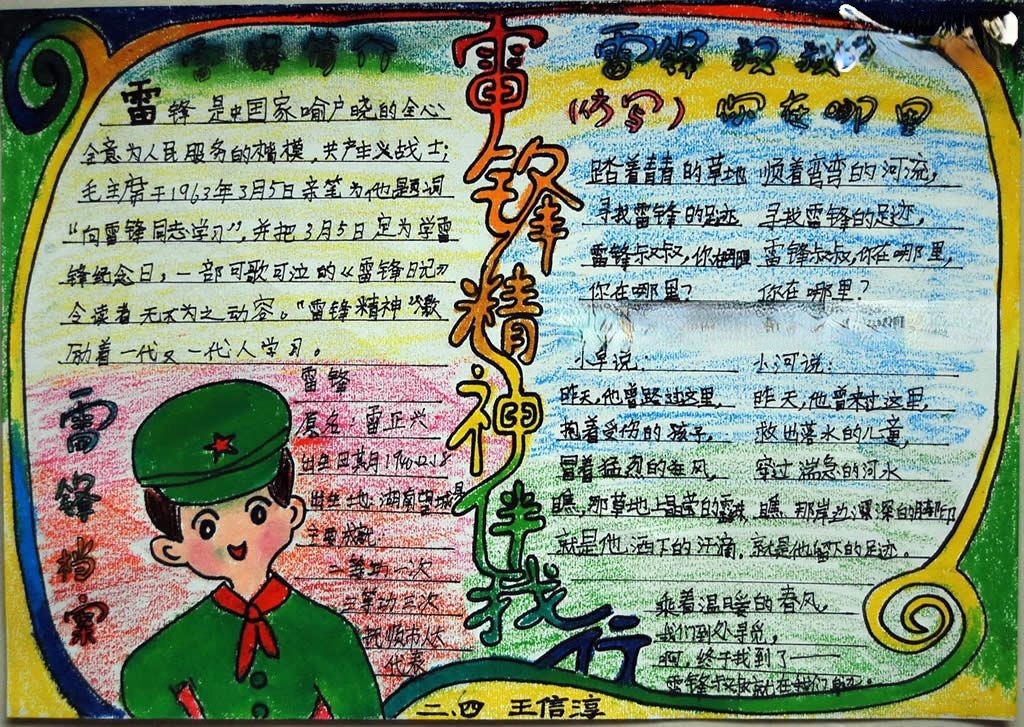 雷锋精神伴我行
雷锋简介
雷锋是中国家喻户晓的全心
全意为人民服务的楷模,共产主义战士;
毛主席于1963年3月5日亲笔为他题词
“向雷锋同志学习”,并把3月5日定为学雷
锋纪念日,一部可歌可泣的《雷锋日记》
令读者无不为之动容。“雷锋精神”激
励着一代又一代人学习。
雷锋档案
雷锋
原名:雷正兴
出生日期1940.12.18
出生地:湖南望城县
主要
二等功一次
三等功三次
抚顺市人大
代表
雷锋叔叔
(仿写)你在哪里
踏着青青的草地 顺着弯弯的河流,
寻找雷锋的足迹 寻找雷锋的足迹,
雷锋叔叔,你在哪里 雷锋叔叔,你在哪里,
你在哪里? 你在哪里?
小草说: 小河说:
昨天,他曾路过这里, 昨天,他曾来过这里,
抱着受伤的孩子, 救出落水的儿童,
冒着猛烈的狂风, 穿过湍急的河水
瞧,那草地上晶莹的露珠 瞧,那岸边深深的脚印
就是他洒下的汗滴, 就是他留下的足迹。
乘着温暖的春风,
我们到处寻觅,
啊,终于找到了——
雷锋叔叔就在我们身边。
二.四 王信淳